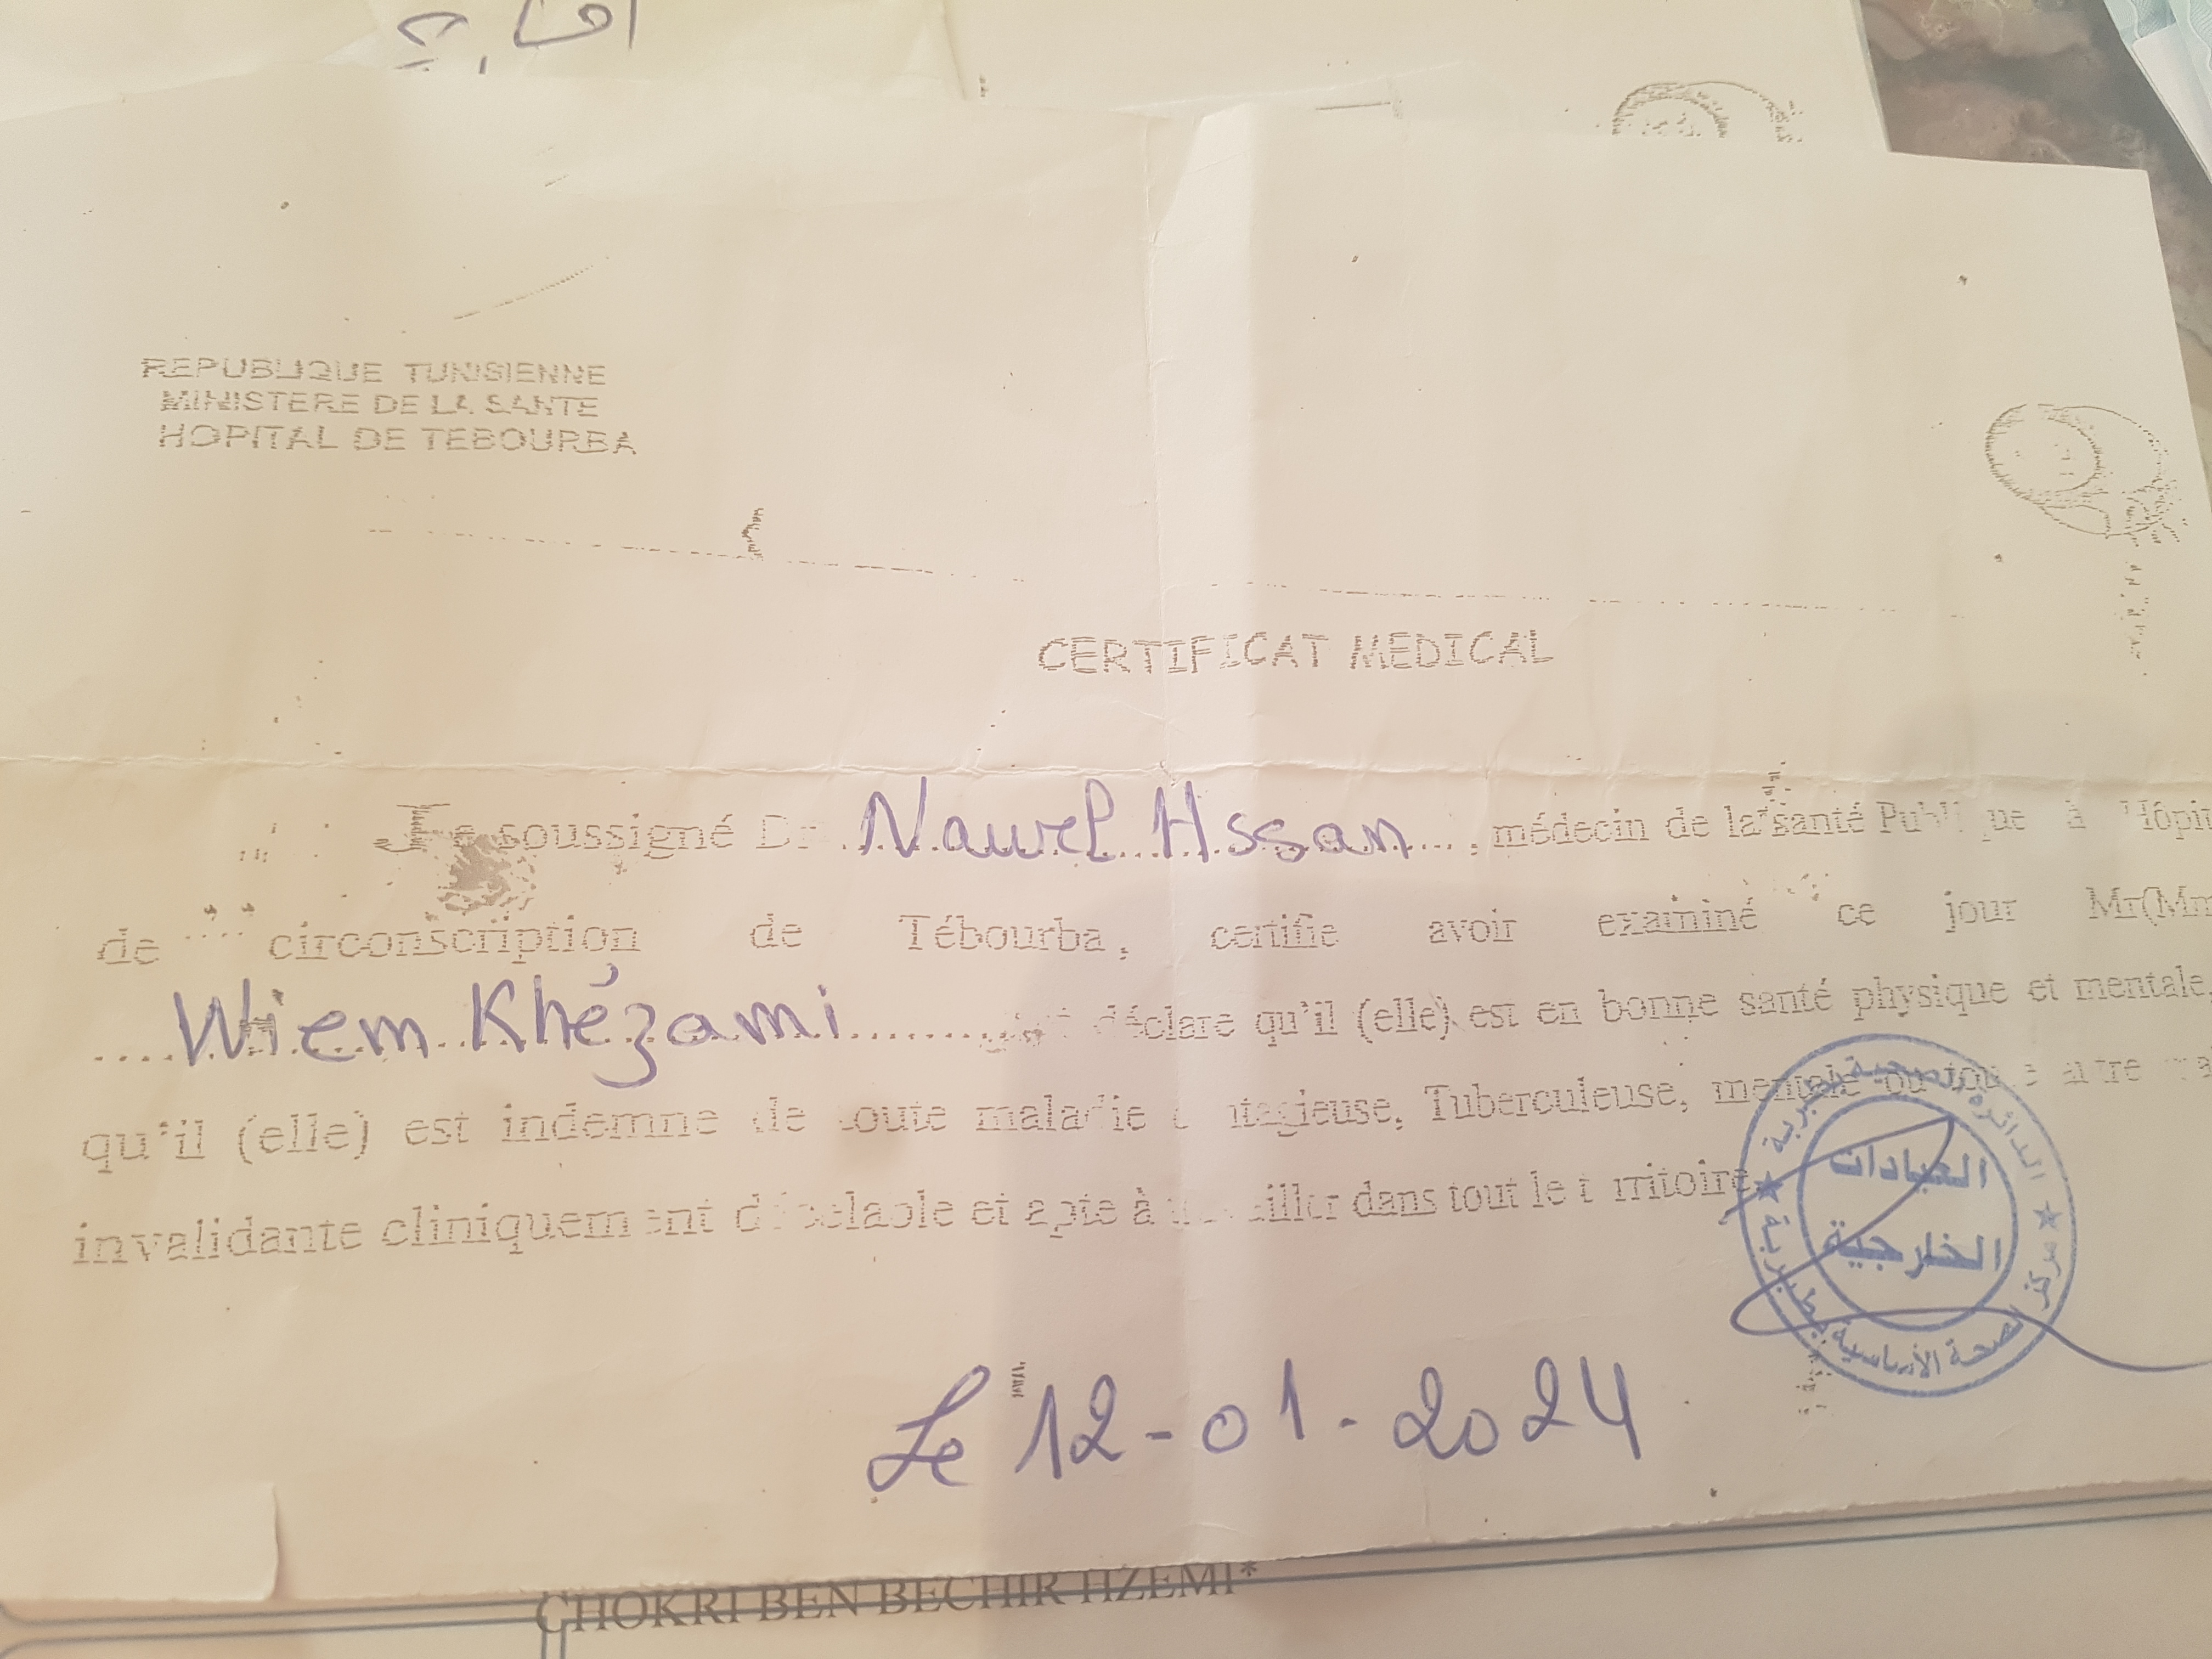 REPUBLIQUE TUNISIENNE
MINISTERE DE LA SANTE
HOPITAL DE TEBOURBA
CERTIFICAT MEDICAL
Je soussigné Dr Nawel Hssan, médecin de la santé Publique à
de circonscription de Tébourba, certifie avoir examiné ce jour
Wiem Khézami déclare qu'il (elle) est en bonne santé physique et mentale,
qu'il (elle) est indemne de toute maladie contagieuse, Tuberculeuse, mentale ou toute autre
invalidante cliniquement décelable et apte à travailler dans tout le territoire.
العيادات
الخارجية
مركز الصحة الأساسية بطبربة
Le 12-01-2024
CHOKRI BEN BECHIR HZEMI*